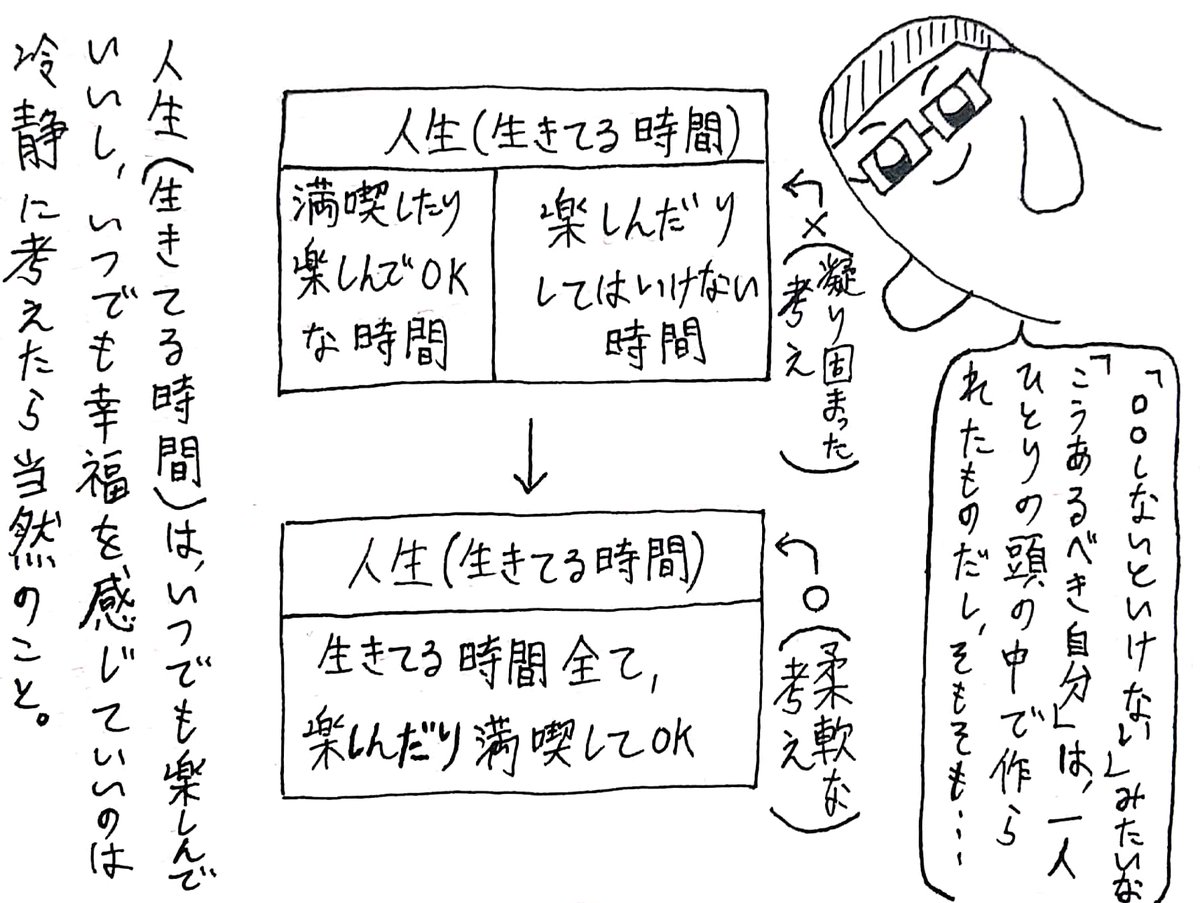 「〇〇しないといけない」みたいな
「こうあるべき自分」は、一人
ひとりの頭の中で作ら
れたものだし、そもそも…
人生(生きてる時間)
満喫したり
楽しんでOK
な時間
楽しんだり
してはいけない
時間
×
(凝り固まった
考え)
人生(生きてる時間)
生きてる時間全て,
楽しんだり満喫してOK
○
(柔軟な
考え)
人生(生きてる時間)は、いつでも楽しんで
いいし、いつでも幸福を感じていいのは
冷静に考えたら当然のこと。